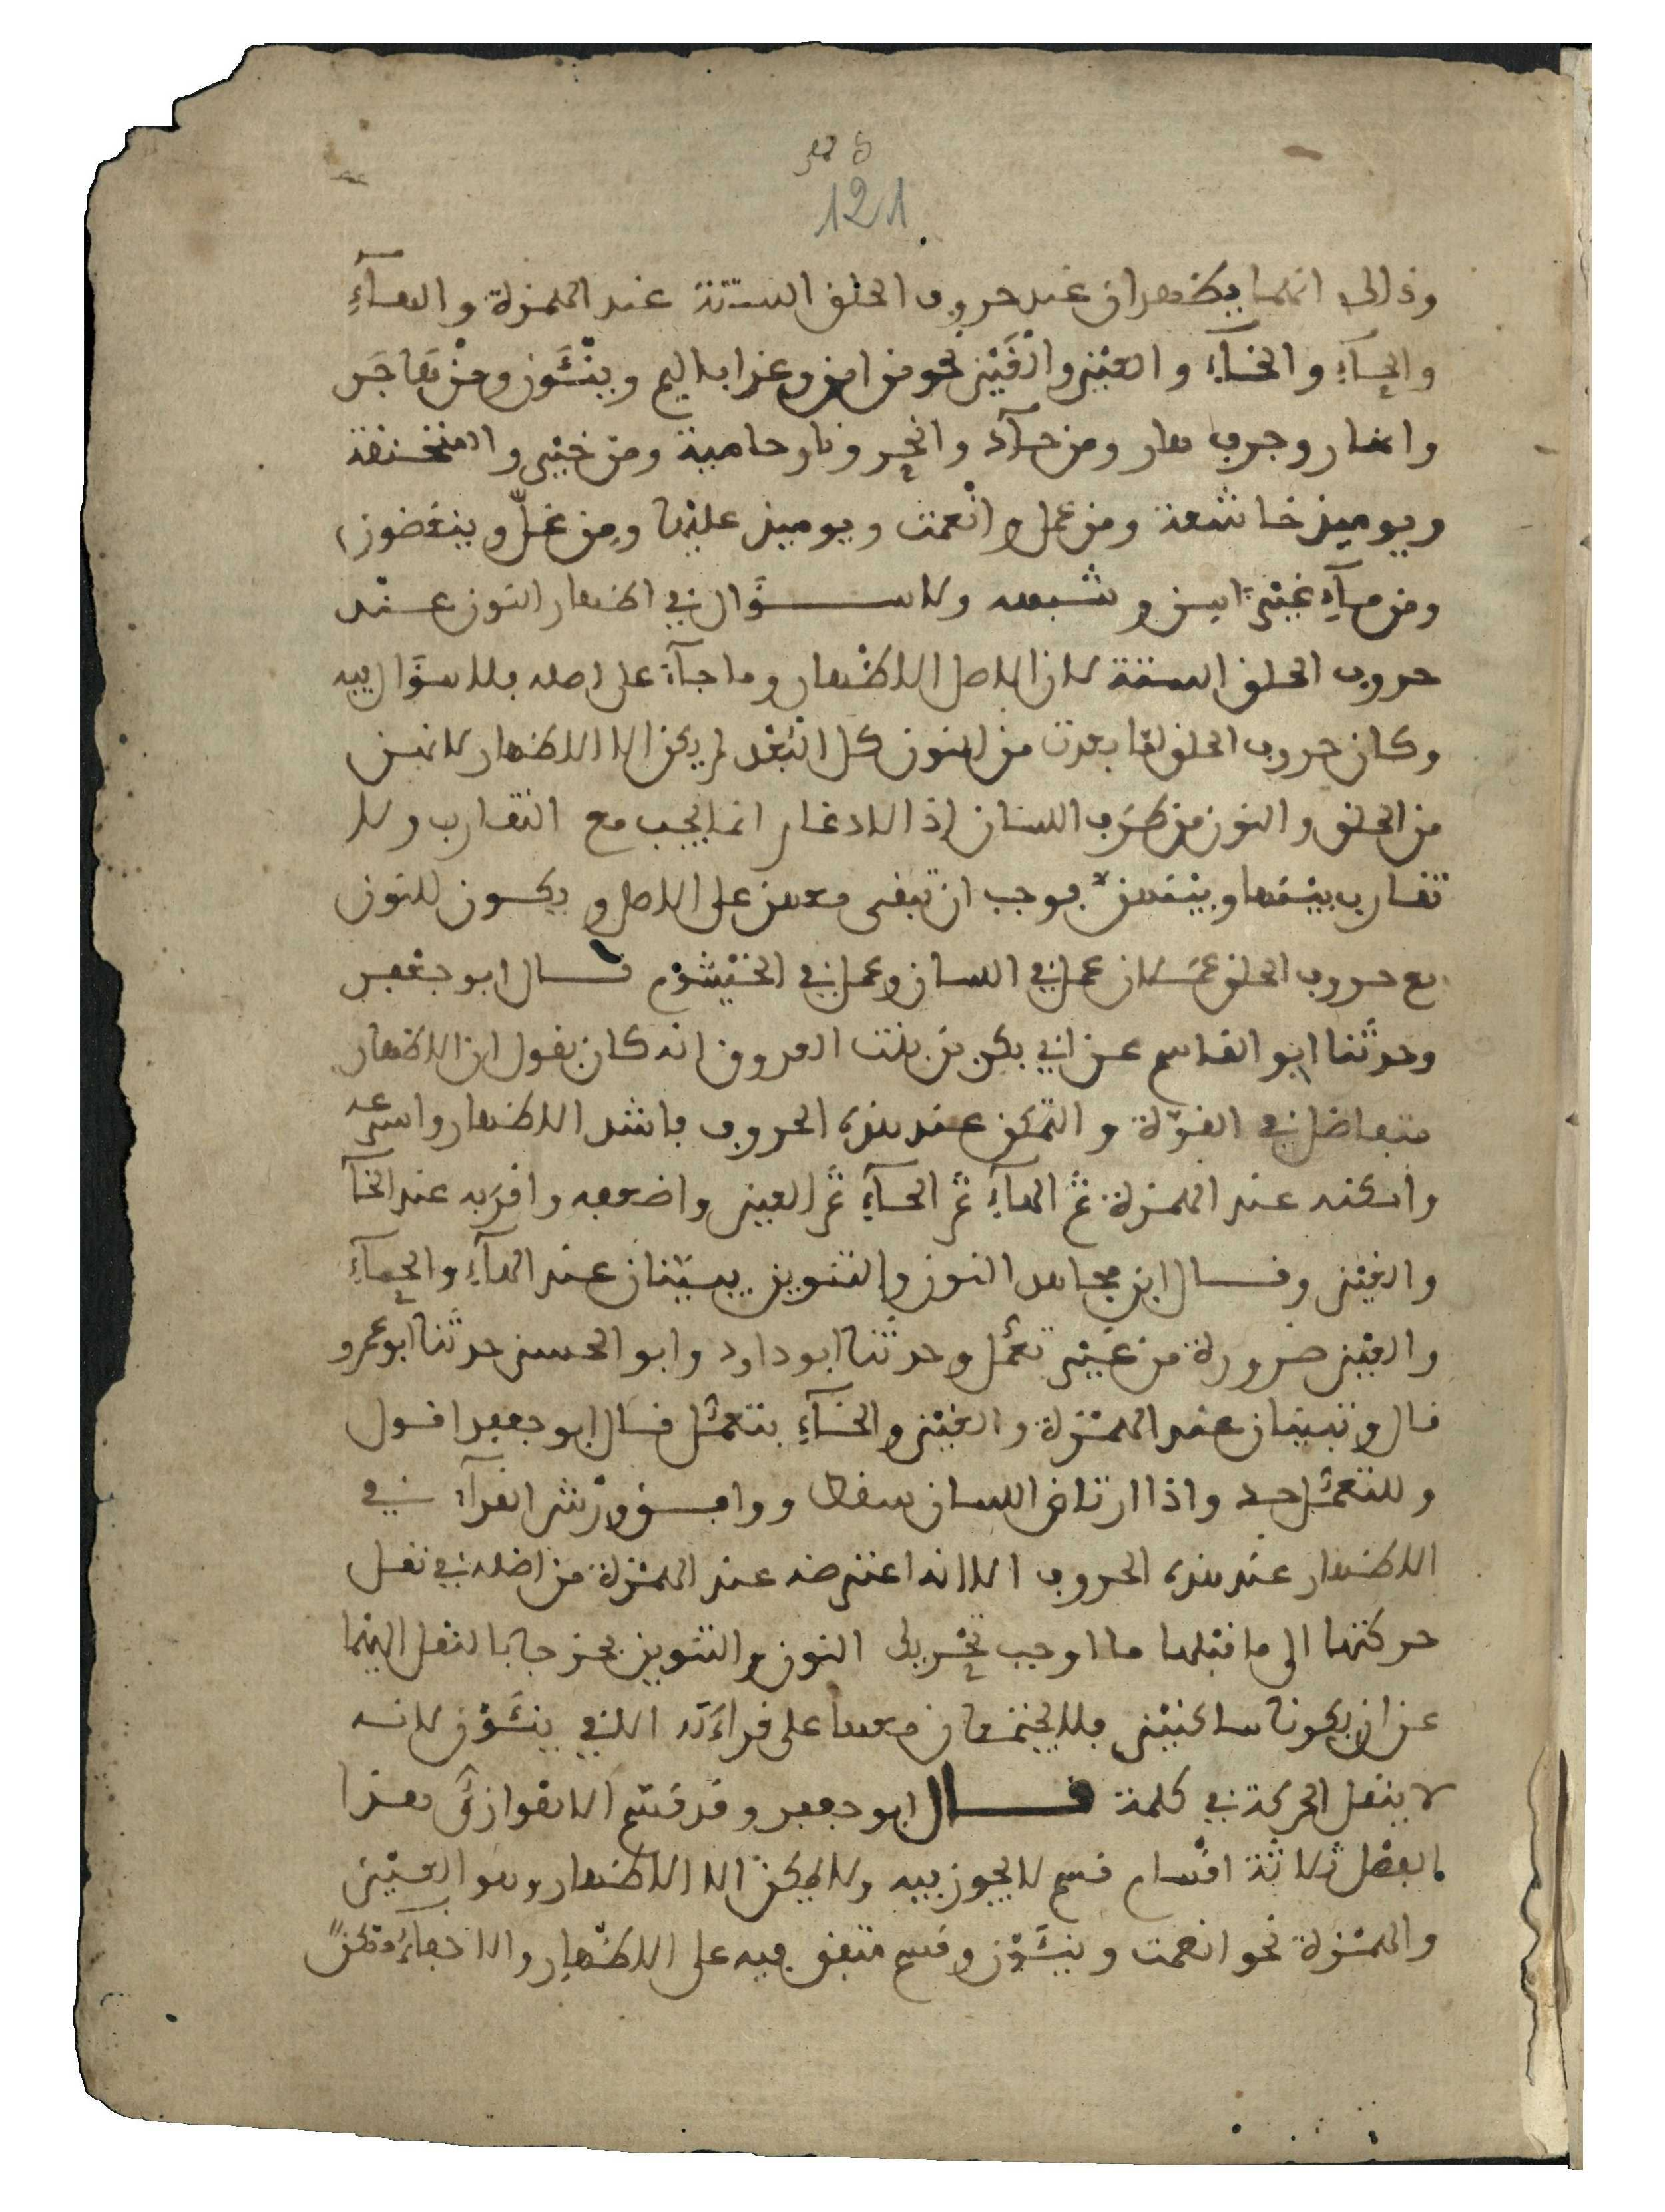 121
وذالك انهما يظهران عند حروف الحلق الستة عند الهمزة والهآءِ
والحآءِ والخآءِ والعين والغين نحو من امن وعذاب اليم وينئون ومن هاجر
وانهار وجرف هار ومن حآد وانحر ونار حامية ومن خير والمنخنقة
ويوميذ خاشعة ومن عمل وانعمت ويوميذ عليها ومن غل وينغضون
ومن مآءٍ غير اسن وشبهه ولا سؤال في اظهار النون عند
حروف الحلق الستة لان الاصل الاظهار وما جآء على اصله فلا سؤال فيه
وكان حروف الحلق لما بعدت من النون كل البعد لم يكن الا الاظهار لانهن
من الحلق والنون من طرف اللسان اذ الادغام انما يجب مع التقارب ولا
تقارب بينها وبينهن فوجب ان تبقى معهن على الاصل ويكون للنون
مع حروف الحلق عملان عمل في اللسان وعمل في الخيشوم قال ابو جعفر
وحدثنا ابو القاسم عن ابي بكر بن بنت العروق انه كان يقول ان الاظهار
يتفاضل في القوة والتمكن عند هذه الحروف فاشد الاظهار واسرعه
وامكنه عند الهمزة ثم الهآءِ ثم الحآءِ ثم العين واضعفه واقربه عند الخآ
والغين وقال ابن مجاهد النون والتنوين يبينان عند الهآءِ والحآءِ
والعين ضرورة من غير تعمل وحدثنا ابو داود وابو الحسن حدثنا ابو عمرو
قال وتبينان عند الهمزة والغين والخآءِ بتعمل قال ابو جعفر اقول
وللتعمل حد واذا ارتاض اللسان سهل ووافق ورش القرآء في
الاظهار عند هذه الحروف الا انه اعترضه عند الهمزة من اصله في نقل
حركتها الى ما قبلها ما اوجب تحريك النون والتنوين فخرجا بالنقل اليهما
عن ان يكونا ساكنين فلا يجتمعان معها على قراءته الا في ينئون لانه
لا ينقل الحركة في كلمة قال ابو جعفر وقد قسم الاهوازي هذا
الفصل ثلاثة اقسام قسم لا يجوز فيه ولا يمكن الا الاظهار وهو العين
والهمزة نحو انعمت وينئون وقسم متفق فيه على الاظهار والاخفاء ممكن